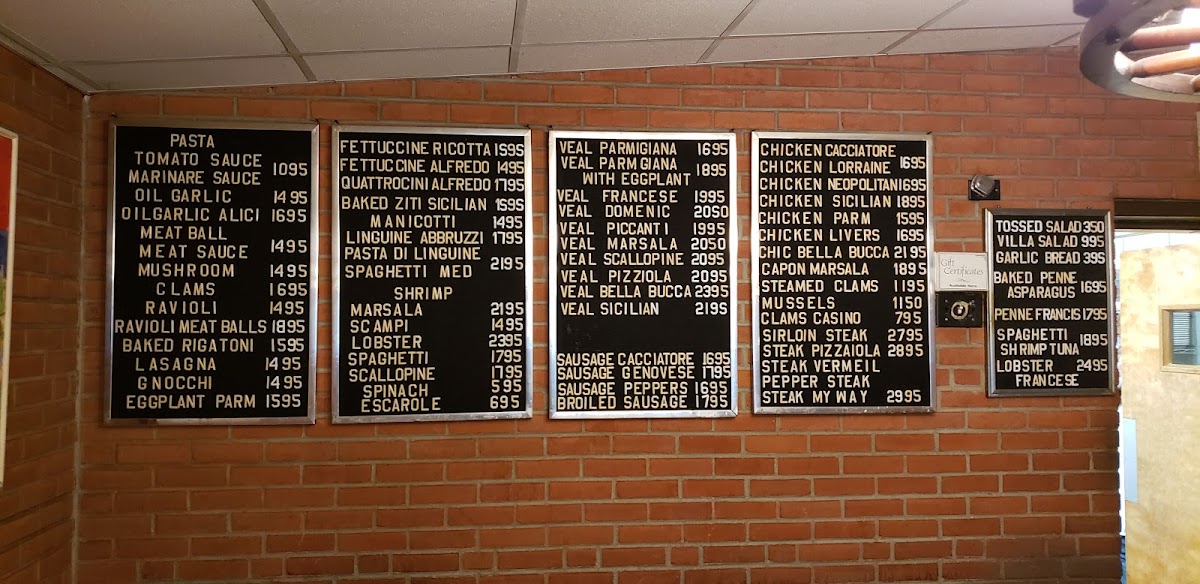 PASTA
TOMATO SAUCE
MARINARE SAUCE 1095
OIL GARLIC 1495
OILGARLIC ALICI 1695
MEAT BALL
MEAT SAUCE 1495
MUSHROOM 1495
CLAMS 1695
RAVIOLI 1495
RAVIOLI MEAT BALLS 1895
BAKED RIGATONI 1595
LASAGNA 1495
GNOCCHI 1495
EGGPLANT PARM 1595
FETTUCINE RICOTTA 1595
FETTUCCINE ALFREDO 1495
QUATTROCINI ALFREDO 1795
BAKED ZITI SICILIAN 1695
MANICOTTI 1495
LINGUINE ABBRUZZI 1795
PASTA DI LINGUINE
SPAGHETTI MED 2195
SHRIMP
MARSALA 2195
SCAMPI 1495
LOBSTER 2395
SPAGHETTI 1795
SCALLOPINE 1795
SPINACH 595
ESCAROLE 695
VEAL PARMIGIANA 1695
VEAL PARMGIANA
WITH EGGPLANT 1895
VEAL FRANCESE 1995
VEAL DOMENIC 2050
VEAL PICCANTI 1995
VEAL MARSALA 2050
VEAL SCALLOPINE 2095
VEAL PIZZIOLA 2095
VEAL BELLA BUCCA 2395
VEAL SICILIAN 2195
SAUSAGE CACCIATORE 1695
SAUSAGE GENOVESE 1795
SAUSAGE PEPPERS 1695
BROILED SAUSAGE 1795
CHICKEN CACCIATORE
CHICKEN LORRAINE 1695
CHICKEN NEOPOLITAN 1695
CHICKEN SICILIAN 1895
CHICKEN PARM 1595
CHICKEN LIVERS 1695
CHIC BELLA BUCCA 2195
CAPON MARSALA 1895
STEAMED CLAMS 1195
MUSSELS 1150
CLAMS CASINO 795
SIRLOIN STEAK 2795
STEAK PIZZAIOLA 2895
STEAK VERMEIL
PEPPER STEAK
STEAK MY WAY 2995
Gift
Certificates
Available Here
TOSSED SALAD 350
VILLA SALAD 995
GARLIC BREAD 395
BAKED PENNE
ASPARAGUS 1695
PENNE FRANCIS 1795
SPAGHETTI
SHRIMP TUNA 1895
LOBSTER 2495
FRANCESE